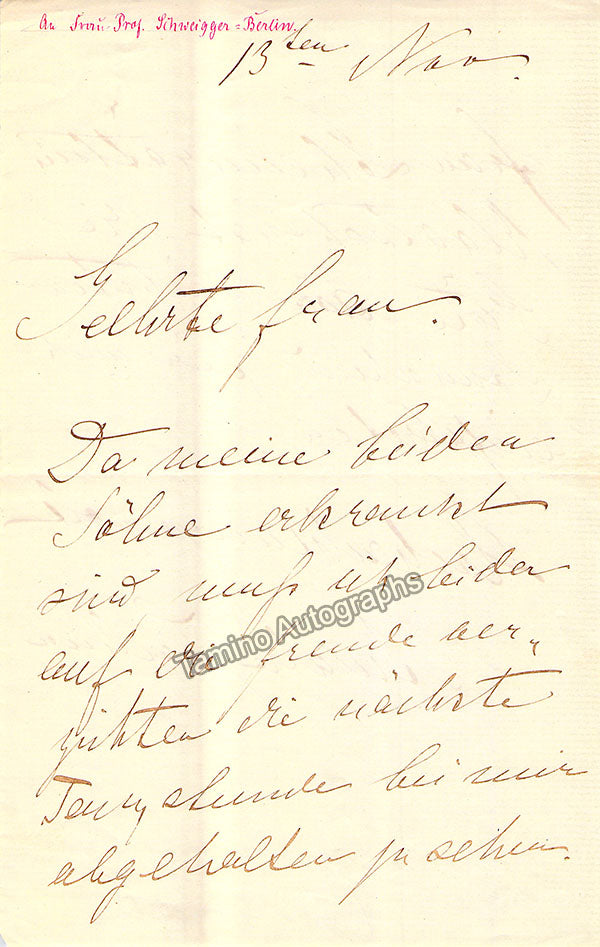 An Frau Prof. Schweigger-Berlin.
13ten Nov.
Geehrte Frau.
Da meine beiden
Söhne erkrankt
sind muß ich leider
auf die Freude ver„
zichten die nächste
Tanzstunde bei mir
abgehalten zu sehen.
Tamino Autographs